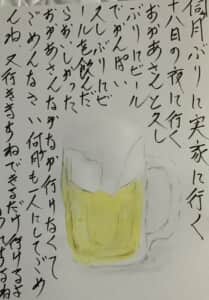 何月ぶりに実家に行く
十八日の夜に行く
おかあさんと久し
ぶりにビール
でかんぱい
久しぶりにビ
ールを飲んだ
らおいしかった
おかあさんなかなか行けなくて
ごめんなさい何月も一人にしてごめ
んね、又行きますねできるだけ行けるよ